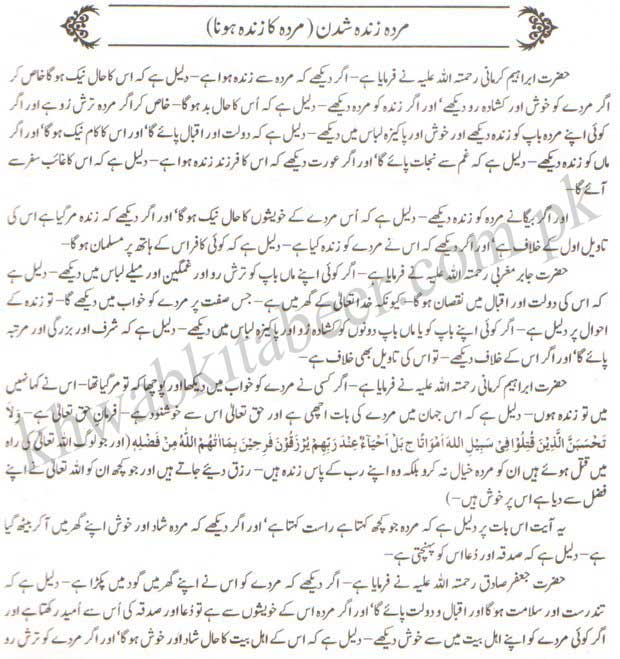 مردہ زندہ شدن (مردہ کا زندہ ہونا)
حضرت ابراہیم کرمانی رحمتہ اللہ علیہ نے فرمایا ہے۔ اگر دیکھے کہ مردہ سے زندہ ہوا ہے۔ دلیل ہے کہ اس کا حال نیک ہو گا خاص کر
اگر مردے کو خوش اور کشادہ رو دیکھے' اور اگر زندہ کو مردہ دیکھے۔ دلیل ہے کہ اُس کا حال بد ہو گا۔ خاص کر اگر مردہ ترش رو ہے اور اگر
کوئی اپنے مردہ باپ کو زندہ دیکھے اور خوش اور پاکیزہ لباس میں دیکھے۔ دلیل ہے کہ دولت اور اقبال پائے گا' اور اس کا کام نیک ہو گا' اور اگر
ماں کو زندہ دیکھے۔ دلیل ہے کہ غم سے نجات پائے گا' اور اگر عورت دیکھے کہ اس کا فرزند زندہ ہوا ہے۔ دلیل ہے کہ اس کا غائب سفر سے
آئے گا۔
اور اگر بیگانے مردہ کو زندہ دیکھے۔ دلیل ہے کہ اُس مردے کے خویشوں کا حال نیک ہو گا' اور اگر دیکھے کہ زندہ مر گیا ہے اس کی
تاویل اول کے خلاف ہے' اور اگر دیکھے کہ اس نے مردے کو زندہ کیا ہے۔ دلیل ہے کہ کوئی کافر اس کے ہاتھ پر مسلمان ہو گا۔
حضرت جابر مغربی رحمتہ اللہ علیہ نے فرمایا ہے۔ اگر کوئی اپنے ماں باپ کو ترش رو اور غمگین اور میلے لباس میں دیکھے۔ دلیل ہے
کہ اس کی دولت اور اقبال میں نقصان ہو گا۔ کیونکہ خدا تعالیٰ کے گھر میں ہے۔ جس صفت پر مردے کو خواب میں دیکھے گا۔ تو زندہ کے
احوال پر دلیل ہے۔ اگر کوئی اپنے باپ کو یا ماں باپ دونوں کو کشادہ رُو اور پاکیزہ لباس میں دیکھے۔ دلیل ہے کہ شرف اور بزرگی اور مرتبہ
پائے گا' اور اگر اس کے خلاف دیکھے۔ تو اس کی تاویل بھی خلاف ہے۔
حضرت ابراہیم کرمانی رحمتہ اللہ علیہ نے فرمایا ہے۔ اگر کسی نے مردے کو خواب میں دیکھا اور پوچھا کہ تو مر گیا تھا۔ اس نے کہا نہیں
میں تو زندہ ہوں۔ دلیل ہے کہ اس جہان میں مردے کی بات اچھی ہے اور حق تعالیٰ اس سے خوشنود ہے۔ فرمان حق تعالیٰ ہے۔ وَلَا
تَحْسَبَنَّ الَّذِيْنَ قُتِلُوْا فِيْ سَبِيْلِ اللهِ اَمْوَاتًا ج بَلْ اَحْيَاءٌ عِنْدَ رَبِّهِمْ يُرْزَقُوْنَ فَرِحِيْنَ بِمَا اٰتٰهُمُ اللهُ مِنْ فَضْلِهٖ (اور جو لوگ اللہ تعالیٰ کی راہ
میں قتل ہوئے ہیں ان کو مردہ خیال نہ کرو بلکہ وہ اپنے رب کے پاس زندہ ہیں۔ رزق دیئے جاتے ہیں اور جو کچھ ان کو اللہ تعالیٰ نے اپنے
فضل سے دیا ہے اس پر خوش ہیں۔)
یہ آیت اس بات پر دلیل ہے کہ مردہ جو کچھ کہتا ہے راست کہتا ہے' اور اگر دیکھے کہ مردہ شاد اور خوش اپنے گھر میں آ کر بیٹھ گیا
ہے۔ دلیل ہے کہ صدقہ اور دُعا اس کو پہنچتی ہے۔
حضرت جعفر صادق رحمتہ اللہ علیہ نے فرمایا ہے۔ اگر دیکھے کہ مردے کو اس نے اپنے گھر میں گود میں پکڑا ہے۔ دلیل ہے کہ
تندرست اور سلامت ہو گا اور اقبال و دولت پائے گا' اور اگر مردہ اس کے خویشوں سے ہے تو دُعا اور صدقہ کی اُس سے اُمید رکھتا ہے اور
اگر کوئی مردے کو اپنے اہل بیت میں سے خوش دیکھے۔ دلیل ہے کہ اس کے اہل بیت کا حال شاد اور خوش ہو گا' اور اگر مردے کو ترش رو
khwabkitabeer.com.pk